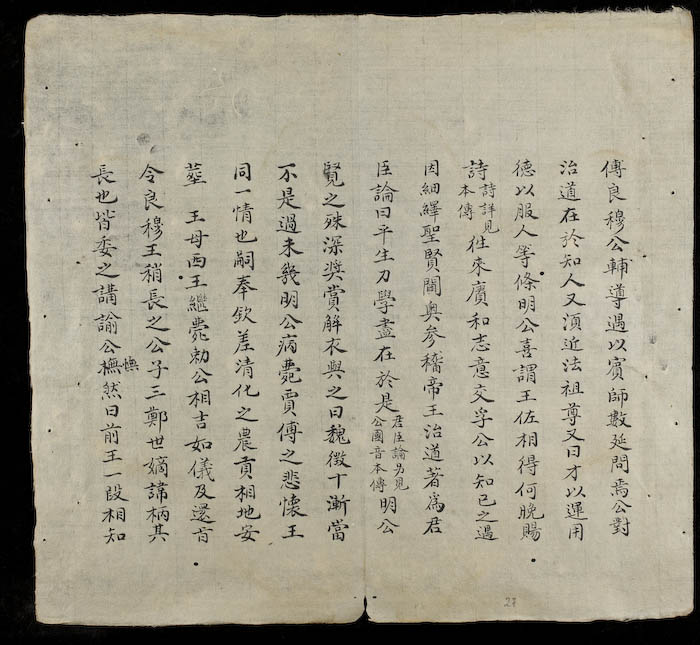 傳良穆公輔導遇以賓師數延問焉公對
治道在於知人又湏近法祖尊又曰才以運用
德以服人等條明公喜謂王佐相得何晚賜
詩詩詳見本傳徃來賡和志意交孚公以知已之遇
因細繹聖賢閫奥参稽帝王治道著爲君
臣論曰平生刀學盡在於是君臣論另見公國音本傳明公
覽之殊深奬賞觧衣與之曰魏徵十漸當
不是過未幾明公病薨賈傅之悲懷王
同一情也嗣奉欽差清化之農貢相地安
塟 王母西王繼薨勅公相吉如儀及還旨
令良穆王稍長之公子三鄭世嫡諱柄其
長也皆委之講諭公憮憮然曰前王一段相知
27